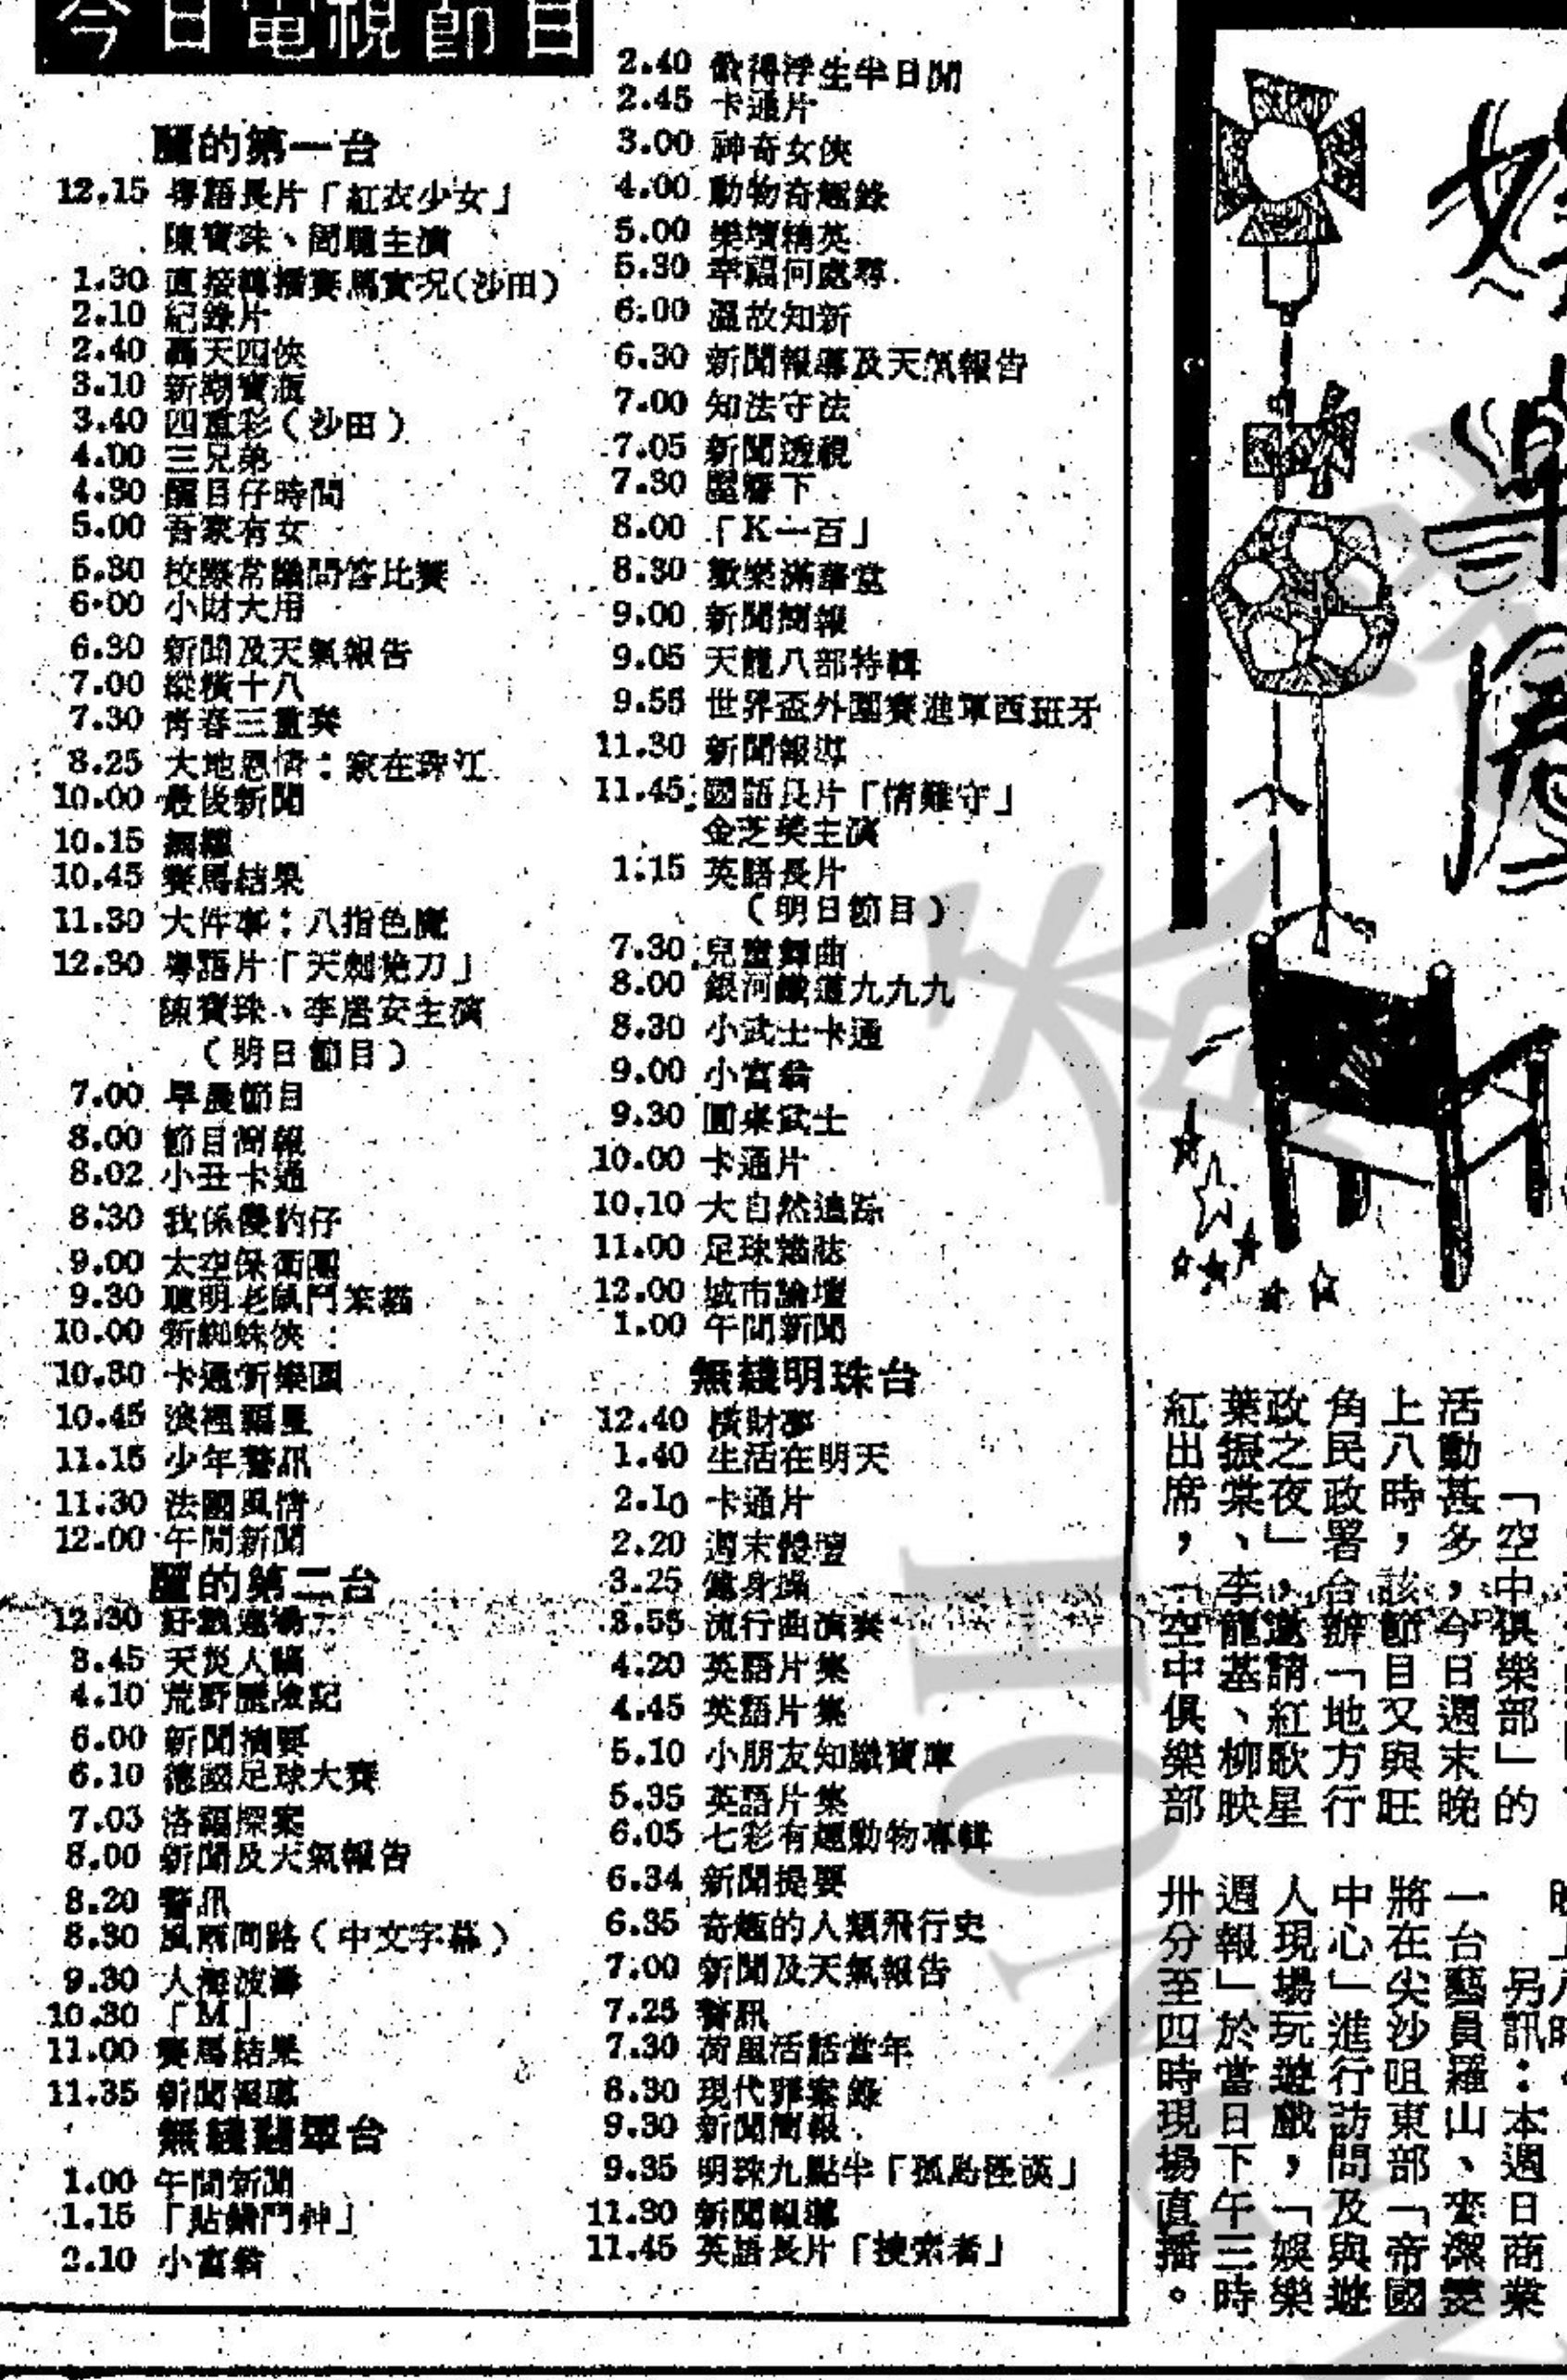 今日電視節目
麗的第一台
12.15 粵語長片「紅衣少女」
陳寶珠、周聰主演
1.30 直接轉播賽馬實況(沙田)
2.10 紀錄片
2.40 轟天四俠
3.10 新潮寶瓶
3.40 四重彩(沙田)
4.00 三兄弟
4.30 醒目仔時間
5.00 吾家有女
5.30 校際常識問答比賽
6.00 小財大用
6.30 新聞及天氣報告
7.00 縱橫十八
7.30 青春三重奏
8.25 大地恩情:家在珠江
10.00 最後新聞
10.15
10.45 賽馬結果
11.30 大件事:八指色魔
12.30 粵語片「天劍絕刀」
陳寶珠、李居安主演
(明日節目)
7.00 早晨節目
8.00 節目簡報
8.02 小丑卡通
8.30 我係變豹仔
9.00 太空保衛團
9.30 聰明老鼠鬥笨貓
10.00 新蜘蛛俠
10.30 卡通新樂園
10.45 浪裡福星
11.15 少年警訊
11.30 法國風情
12.00 午間新聞
麗的第二台
12.30 好戲連場
3.45 天災人禍
4.10 荒野歷險記
6.00 新聞摘要
6.10 德國足球大賽
7.03 洛福探案
8.00 新聞及天氣報告
8.20 警訊
8.30 風雨同路(中文字幕)
9.30 人海波濤
10.30 「M」
11.00 賽馬結果
11.35 新聞報導
無綫翡翠台
1.00 午間新聞
1.15 「貼錯門神」
2.10 小富翁
2.40 偷得浮生半日閒
2.45 卡通片
3.00 神奇女俠
4.00 動物奇趣錄
5.00 樂壇精英
5.30 幸福何處尋
6.00 溫故知新
6.30 新聞報導及天氣報告
7.00 知法守法
7.05 新聞透視
7.30 星聲下
8.00 「K一百」
8.30 歡樂滿華堂
9.00 新聞簡報
9.05 天龍八部特輯
9.55 世界盃外圍賽進軍西班牙
11.30 新聞報導
11.45 國語長片「情難守」
金芝美主演
1.15 英語長片
(明日節目)
7.30 兒童舞曲
8.00 銀河鐵道九九九
8.30 小武士卡通
9.00 小富翁
9.30 圓桌武士
10.00 卡通片
10.10 大自然追踪
11.00 足球雜誌
12.00 城市論壇
1.00 午間新聞
無綫明珠台
12.40 橫財夢
1.40 生活在明天
2.10 卡通片
2.20 週末體壇
3.25 健身操
3.55 流行曲演奏
4.20 英語片集
4.45 英語片集
5.10 小朋友知識寶庫
5.35 英語片集
6.05 七彩有趣動物專輯
6.34 新聞提要
6.35 奇趣的人類飛行史
7.00 新聞及天氣報告
7.25 警訊
7.30 荷里活話當年
8.30 現代罪案錄
9.30 新聞簡報
9.35 明珠九點半「孤島怪漢」
11.30 新聞報導
11.45 英語長片「搜索者」
「空中俱樂部」的
活動甚多,今日週末晚
上八時,該節目又與旺
角民政署合辦「地方行
政之夜」,邀請紅歌星
葉振棠、李龍基、柳映
紅出席,「空中俱樂部
另訊:本週日商業
一台藝員羅山、麥潔雯
將在尖沙咀東部「帝國
中心」進行訪問及與遊
人現場玩遊戲,「娛樂
週報」於當日下午三時
卅分至四時現場直播。